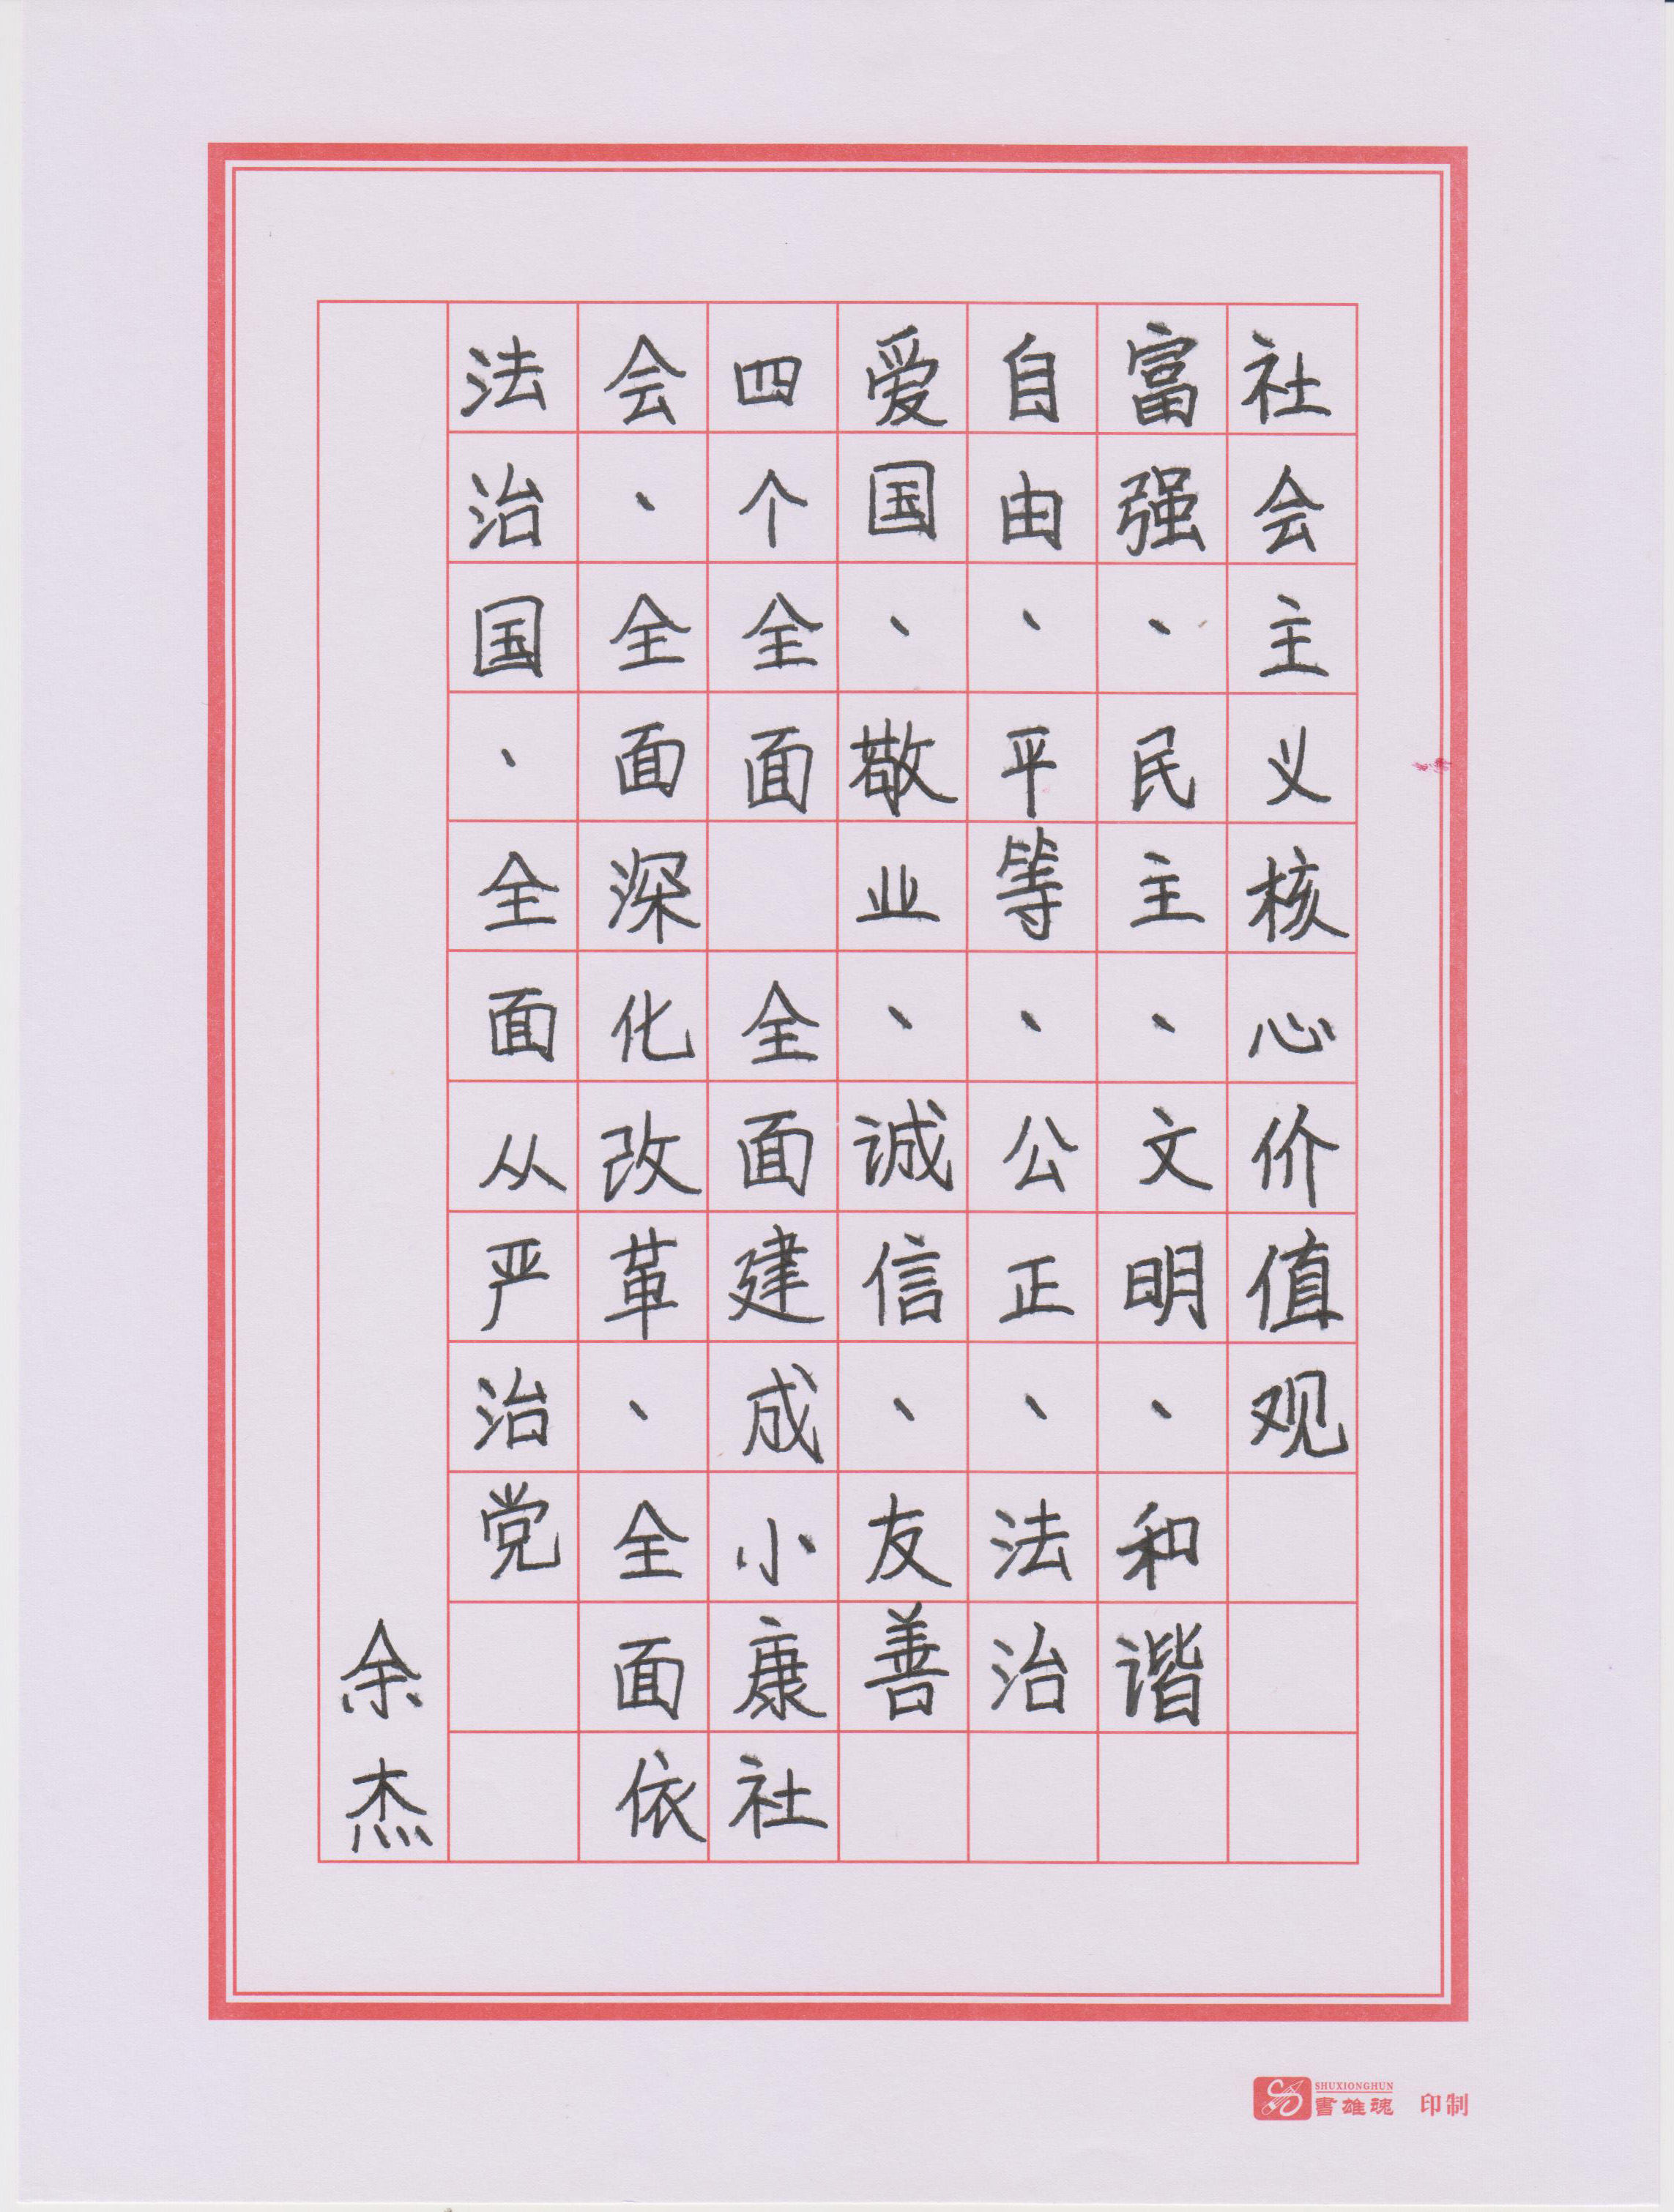 社会主义核心价值观
富强、民主、文明、和谐
自由、平等、公正、法治
爱国、敬业、诚信、友善
四个全面 全面建成小康社
会、全面深化改革、全面依
法治国、全面从严治党
余杰
SHUXIONGHUN
書雄魂 印制